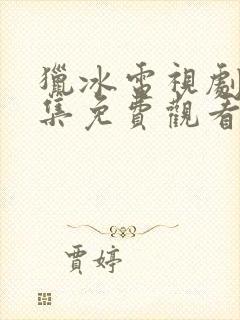 獵冰電視劇
集免費觀看
賈婷